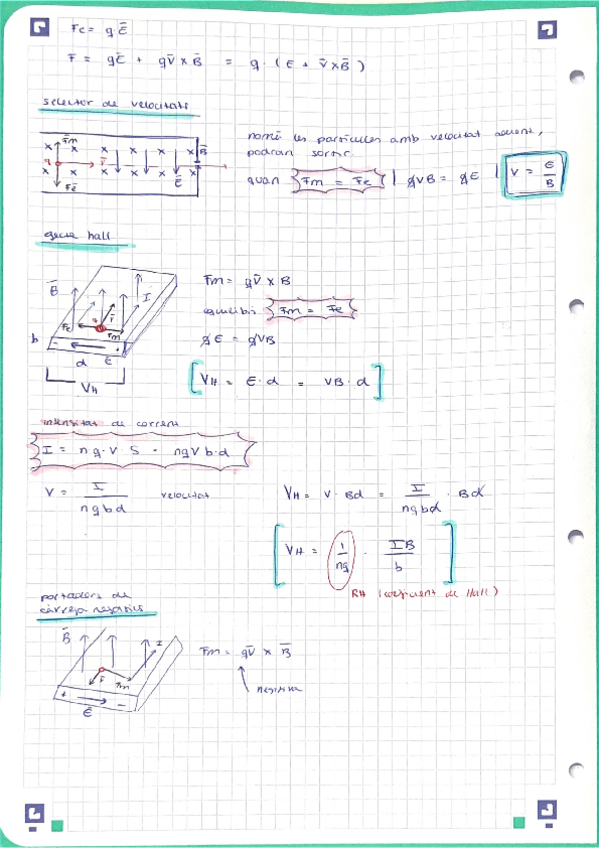 Fe = q·Ē
F̄ = qĒ + qv̄ × B̄ = q · (E + v̄ × B̄)
selector de velocitats
F̄m
x x x x x x B̄
q v̄
x x x x x x
F̄e Ē
només les particules amb velocitat adient,
podran sortir.
quan Fm = Fe | qVB = qE | V = E/B
efecte hall
B̄ I
Fe q v̄ Fm
b - + 
d E
VH
Fm = qv̄ × B
equilibri Fm = Fe
qE = qVB
[ VH = E·d = VB·d ]
intensitat de corrent
I = nq·V·S = nqVb·d
V = I/nqbd velocitat
VH = V·Bd = I/nqbd · Bd
[ VH = 1/nq · IB/b ]
RH (coeficient de Hall)
portadors de
càrrega negatius
B̄ I
v̄ Fm
+ -
E
Fm = qv̄ × B̄
negativa